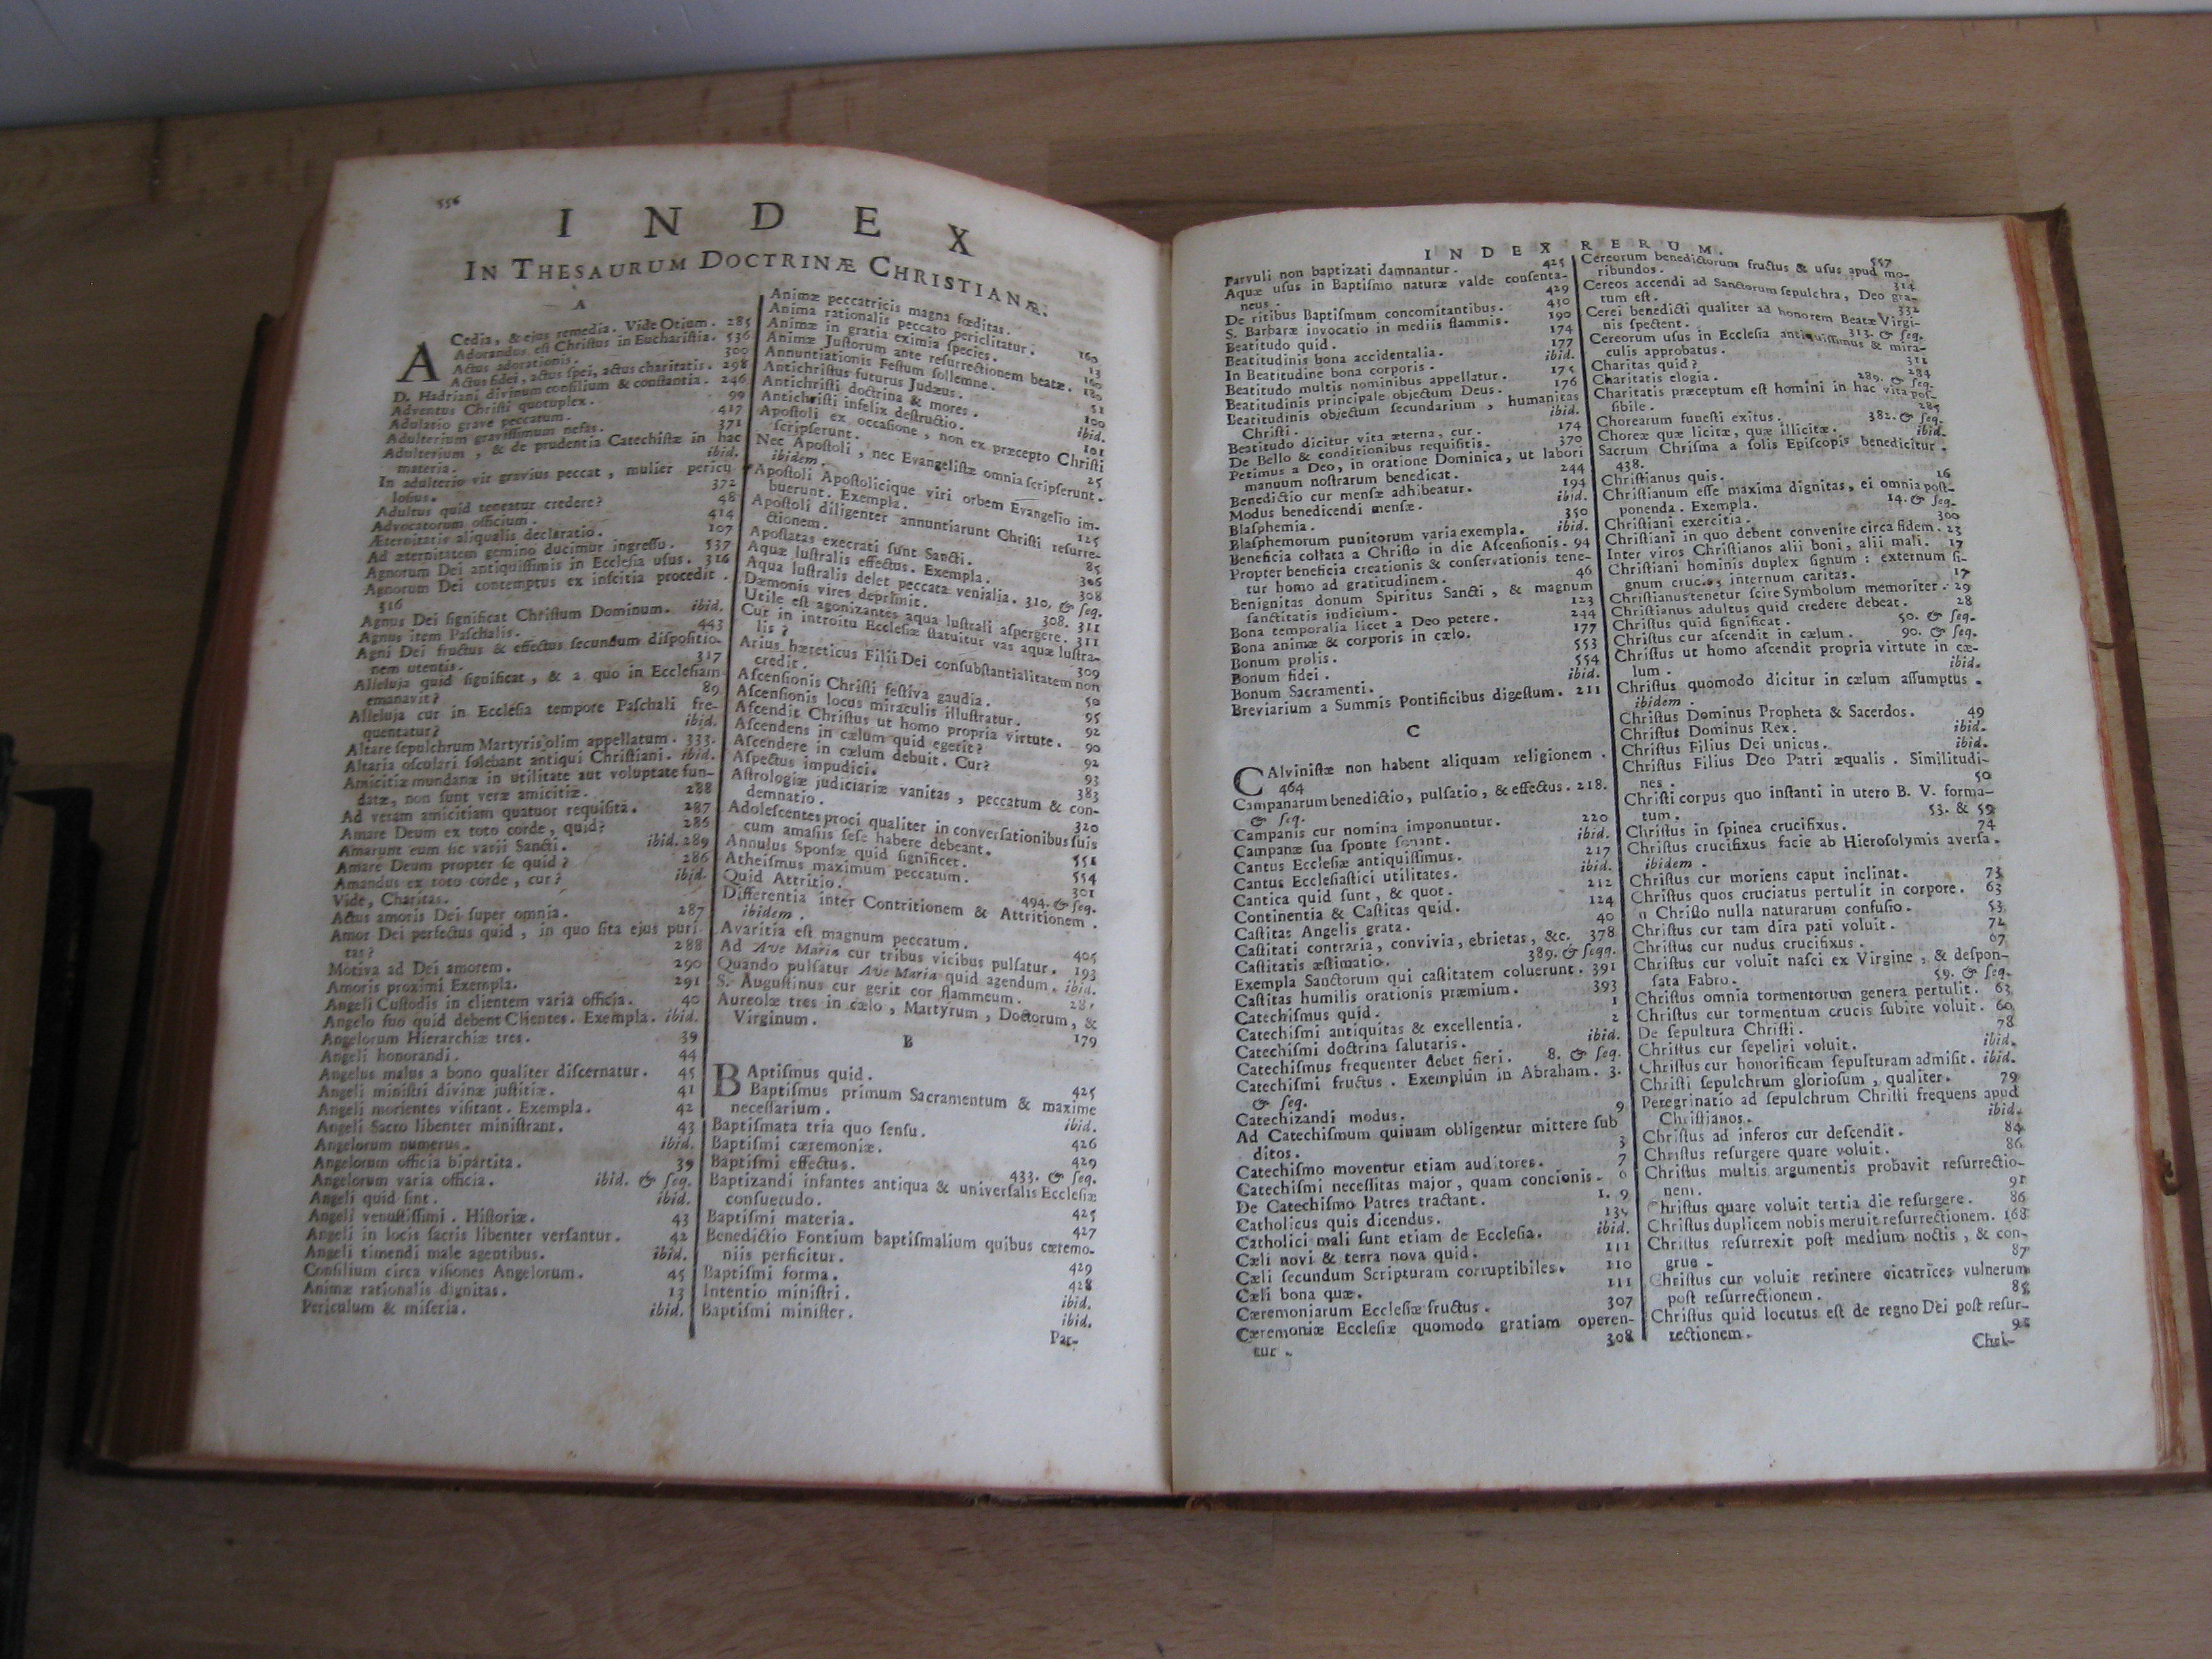 556
INDEX
IN THESAURUM DOCTRINÆ CHRISTIANÆ.
A
ACedia, & ejus remedia. Vide Otium. 285
Adorandus est Christus in Eucharistia. 536
Actus adorationis. 300
Actus fidei, actus spei, actus charitatis. 298
D. Hadriani divinum consilium & constantia. 246
Adventus Christi quotuplex. 99
Adulatio grave peccatum. 417
Adulterium gravissimum nefas. 371
Adulterium, & de prudentia Catechistæ in hac
materia. ibid.
In adulterio vir gravius peccat, mulier pericu
losius. 372
Adultus quid teneatur credere? 48
Advocatorum officium. 414
Æternitatis aliqualis declaratio. 107
Ad æternitatem gemino ducimur ingressu. 537
Agnorum Dei antiquissimis in Ecclesia usus. 316
Agnorum Dei contemptus ex inscitia procedit.
316
Agnus Dei significat Christum Dominum. ibid.
Agnus item Paschalis. 443
Agni Dei fructus & effectus secundum dispositio-
nem utentis. 317
Alleluja quid significat, & a quo in Ecclesiam
emanavit? 89
Alleluja cur in Ecclesia tempore Paschali fre-
quentatur? ibid.
Altare sepulchrum Martyris olim appellatum. 333.
Altaria osculari solebant antiqui Christiani. ibid.
Amicitiæ mundanæ in utilitate aut voluptate fun-
datæ, non sunt veræ amicitiæ. 288
Ad veram amicitiam quatuor requisita. 287
Amare Deum ex toto corde, quid? 286
Amarunt eum sic varii Sancti. ibid. 289
Amare Deum propter se quid? 286
Amandus ex toto corde, cur? ibid.
Vide, Charitas.
Actus amoris Dei super omnia. 287
Amor Dei perfectus quid, in quo sita ejus puri
tas? 288
Motiva ad Dei amorem. 290
Amoris proximi Exempla. 291
Angeli Custodis in clientem varia officia. 40
Angelo suo quid debent Clientes. Exempla. ibid.
Angelorum Hierarchiæ tres. 39
Angeli honorandi. 44
Angelus malus a bono qualiter discernatur. 45
Angeli ministri divinæ justitiæ. 41
Angeli morientes visitant. Exempla. 42
Angeli Sacro libenter ministrant. 43
Angelorum numerus. ibid.
Angelorum officia bipartita. 39
Angelorum varia officia. ibid. & seq.
Angeli quid sint. ibid.
Angeli venustissimi. Historiæ. 43
Angeli in locis sacris libenter versantur. 42
Angeli timendi male agentibus. ibid.
Consilium circa visiones Angelorum. 45
Animæ rationalis dignitas. 13
Periculum & miseria. ibid.
Animæ peccatricis magna fœditas. 160
Anima rationalis peccato periclitatur. 13
Animæ in gratia eximia species. 160
Animæ Justorum ante resurrectionem beatæ. 180
Annuntiationis Festum sollemne. 51
Antichristus futurus Judæus. 100
Antichristi doctrina & mores. ibid.
Antichristi infelix destructio. 101
Apostoli ex occasione, non ex præcepto Christi
scripserunt. 25
Nec Apostoli, nec Evangelistæ omnia scripserunt.
ibidem.
Apostoli Apostolicique viri orbem Evangelio im-
buerunt. Exempla. 125
Apostoli diligenter annuntiarunt Christi resurre-
ctionem. 85
Apostatas execrati sunt Sancti. 306
Aquæ lustralis effectus. Exempla. 308
Aqua lustralis delet peccata venialia. 310, & seq.
Dæmonis vires deprimit. 308. 311
Utile est agonizantes aqua lustrali aspergere. 311
Cur in introitu Ecclesiæ statuitur vas aquæ lustra-
lis? 309
Arius hæreticus Filii Dei consubstantialitatem non
credit. 50
Ascensionis Christi festiva gaudia. 95
Ascensionis locus miraculis illustratur. 92
Ascendit Christus ut homo propria virtute. 90
Ascendens in cælum quid egerit? 92
Ascendere in cælum debuit. Cur? 93
Aspectus impudici. 383
Astrologiæ judiciariæ vanitas, peccatum & con-
demnatio. 320
Adolescentes proci qualiter in conversationibus suis
cum amasiis sese habere debeant. 551
Annulus Sponsæ quid significet. 554
Atheismus maximum peccatum. 301
Quid Attritio. 494. & seq.
Differentia inter Contritionem & Attritionem.
ibidem.
Avaritia est magnum peccatum. 405
Ad Ave Maria cur tribus vicibus pulsatur. 193
Quando pulsatur Ave Maria quid agendum. ibid.
S. Augustinus cur gerit cor flammeum.
Aureolæ tres in cælo, Martyrum, Doctorum, &
Virginum. 179
B
BAptismus quid. 425
Baptismus primum Sacramentum & maxime
necessarium. ibid.
Baptismata tria quo sensu. 426
Baptismi cæremoniæ. 429
Baptismi effectus. 433. & seq.
Baptizandi infantes antiqua & universalis Ecclesiæ
consuetudo. 425
Baptismi materia. 427
Benedictio Fontium baptismalium quibus cæremo-
niis perficitur. 429
Baptismi forma. 428
Intentio ministri. ibid.
Baptismi minister. ibid.
Par-
INDEX RERUM. 557
Parvuli non baptizati damnantur. 425
Aquæ usus in Baptismo naturæ valde consenta-
neus. 429
De ritibus Baptismum concomitantibus. 430
S. Barbaræ invocatio in mediis flammis. 190
Beatitudo quid. 174
Beatitudinis bona accidentalia. 177
In Beatitudine bona corporis. ibid.
Beatitudo multis nominibus appellatur. 175
Beatitudinis principale objectum Deus. 176
Beatitudinis objectum secundarium, humanitas
Christi. ibid.
Beatitudo dicitur vita æterna, cur. 174
De Bello & conditionibus requisitis. 370
Petimus a Deo, in oratione Dominica, ut labori
manuum nostrarum benedicat. 244
Benedictio cur mensæ adhibeatur. 194
Modus benedicendi mensæ. ibid.
Blasphemia. 350
Blasphemorum punitorum varia exempla. ibid.
Beneficia collata a Christo in die Ascensionis. 94
Propter beneficia creationis & conservationis tene-
tur homo ad gratitudinem. 46
Benignitas donum Spiritus Sancti, & magnum
sanctitatis indicium. 123
Bona temporalia licet a Deo petere. 244
Bona animæ & corporis in cælo. 177
Bonum prolis. 553
Bonum fidei. 554
Bonum Sacramenti. ibid.
Breviarium a Summis Pontificibus digestum. 211
C
CAlvinistæ non habent aliquam religionem.
464
Campanarum benedictio, pulsatio, & effectus. 218.
& seq.
Campanis cur nomina imponuntur. 220
Campanæ sua sponte sonant. ibid.
Cantus Ecclesiæ antiquissimus. 217
Cantus Ecclesiastici utilitates. ibid.
Cantica quid sunt, & quot. 212
Continentia & Castitas quid. 124
Castitas Angelis grata. 40
Castitati contraria, convivia, ebrietas, &c. 378
Castitatis æstimatio. 389. & seqq.
Exempla Sanctorum qui castitatem coluerunt. 391
Castitas humilis orationis præmium. 393
Catechismus quid. 1
Catechismi antiquitas & excellentia. 2
Catechismi doctrina salutaris. ibid.
Catechismus frequenter debet fieri. 8. & seq.
Catechismi fructus. Exemplum in Abraham. 3.
& seq.
Catechizandi modus. 9
Ad Catechismum quinam obligentur mittere sub
ditos. 3
Catechismo moventur etiam auditores. 7
Catechismi necessitas major, quam concionis. 6
De Catechismo Patres tractant. 1. 9
Catholicus quis dicendus. 135
Catholici mali sunt etiam de Ecclesia. ibid.
Cæli novi & terra nova quid. 111
Cæli secundum Scripturam corruptibiles. 110
Cæli bona quæ. 111
Cæremoniarum Ecclesiæ fructus. 307
Cæremoniæ Ecclesiæ quomodo gratiam operen-
tur. 308
Cereorum benedictorum fructus & usus apud mo-
ribundos. 314
Cereos accendi ad Sanctorum sepulchra, Deo gra-
tum est. 332
Cerei benedicti qualiter ad honorem Beatæ Virgi-
nis spectent. 313. & seq.
Cereorum usus in Ecclesia antiquissimus & mira-
culis approbatus. 311
Charitas quid? 284
Charitatis elogia. 289. & seq.
Charitatis præceptum est homini in hac vita pos-
sibile. 285
Chorearum funesti exitus. 382. & seq.
Choreæ quæ licitæ, quæ illicitæ. ibid.
Sacrum Chrisma a solis Episcopis benedicitur.
438.
Christianus quis. 16
Christianum esse maxima dignitas, ei omnia post-
ponenda. Exempla. 14. & seq.
Christiani exercitia. 300
Christiani in quo debent convenire circa fidem. 23
Inter viros Christianos alii boni, alii mali. 17
Christiani hominis duplex signum: externum si-
gnum crucis, internum caritas. 17
Christianus tenetur scire Symbolum memoriter. 29
Christianus adultus quid credere debeat. 28
Christus quid significat. 50. & seq.
Christus cur ascendit in cælum. 90. & seq.
Christus ut homo ascendit propria virtute in cæ-
lum. ibid.
Christus quomodo dicitur in cælum assumptus.
ibidem.
Christus Dominus Propheta & Sacerdos. 49
Christus Dominus Rex. ibid.
Christus Filius Dei unicus. ibid.
Christus Filius Deo Patri æqualis. Similitudi-
nes. 50
Christi corpus quo instanti in utero B. V. forma-
tum. 53. & 59
Christus in spinea crucifixus. 74
Christus crucifixus facie ab Hierosolymis aversa.
ibidem.
Christus cur moriens caput inclinat. 73
Christus quos cruciatus pertulit in corpore. 63
n Christo nulla naturarum confusio. 53
Christus cur tam dira pati voluit. 72
Christus cur nudus crucifixus. 67
Christus cur voluit nasci ex Virgine, & despon-
sata Fabro. 59. & seq.
Christus omnia tormentorum genera pertulit. 63
Christus cur tormentum crucis subire voluit. 60
De sepultura Christi. 78
Christus cur sepeliri voluit. ibid.
Christus cur honorificam sepulturam admisit. ibid.
Christi sepulchrum gloriosum, qualiter. 79
Peregrinatio ad sepulchrum Christi frequens apud
Christianos. ibid.
Christus ad inferos cur descendit. 84
Christus resurgere quare voluit. 86
Christus multis argumentis probavit resurrectio-
nem. 91
Christus quare voluit tertia die resurgere. 86
Christus duplicem nobis meruit resurrectionem. 168
Christus resurrexit post medium noctis, & con-
grue. 87
Christus cur voluit retinere cicatrices vulnerum
post resurrectionem. 85
Christus quid locutus est de regno Dei post resur-
rectionem.
Chri-